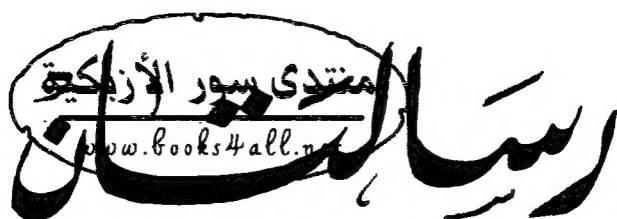 منتدى سور الأزبكية
www.books4all.net
رسالتان